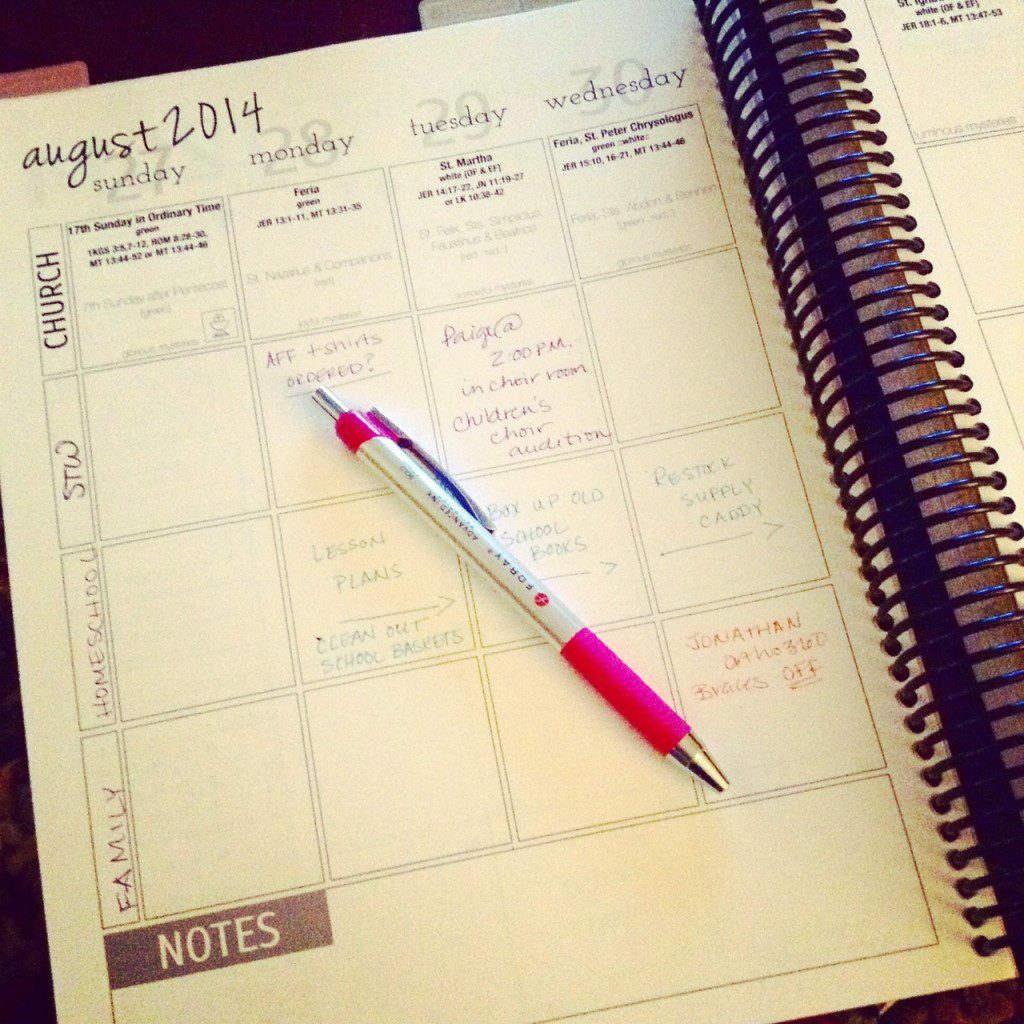 august 2014
27 28 29 30
sunday monday tuesday wednesday
CHURCH
17th Sunday in Ordinary Time
green
1KGS 3:5,7-12, ROM 8:28-30,
MT 13:44-52 or MT 13:44-46
7th Sunday after Pentecost
(green)
glorious mysteries
Feria
green
JER 13:1-11, MT 13:31-35
St. Nazarius & Companions
(red)
joyful mysteries
St. Martha
white (OF & EF)
JER 14:17-22, JN 11:19-27
or LK 10:38-42
St. Felix, Sts. Simplicius,
Faustinus & Beatrice
sorrowful mysteries
Feria, St. Peter Chrysologus
green ::white::
JER 15:10, 16-21, MT 13:44-46
Feria, Sts. Abdon & Sennen
glorious mysteries
STW
AFF t-shirts
ORDERED?
Paige @
2:00 P.M.
in choir room
children's
choir
audition
HOMESCHOOL
LESSON
PLANS
CLEAN OUT
SCHOOL BASKETS
BOX UP OLD
SCHOOL
BOOKS
RESTOCK
SUPPLY
CADDY
FAMILY
JONATHAN
Ortho 360
Braces OFF
NOTES
FORAY
ADVANCED INK
white (OF & EF)
JER 18:1-6, MT 13:47-53
luminous mysteries